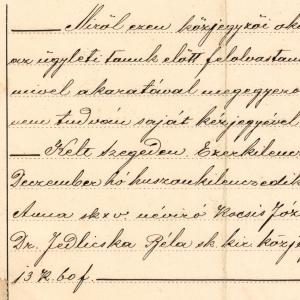 Miről ezen közjegyzői ok
az ügyleti tanuk előtt felolvastam
mivel akaratával megegyező
nem tudván saját kézjegyével
Kelt Szegeden Ezerkilencz
Deczember hó huszonkilenczedik
Anna skrv. névíró Kocsis Józ
Dr. Jedlicska Béla sk. kir közj
13 K. 60 f.